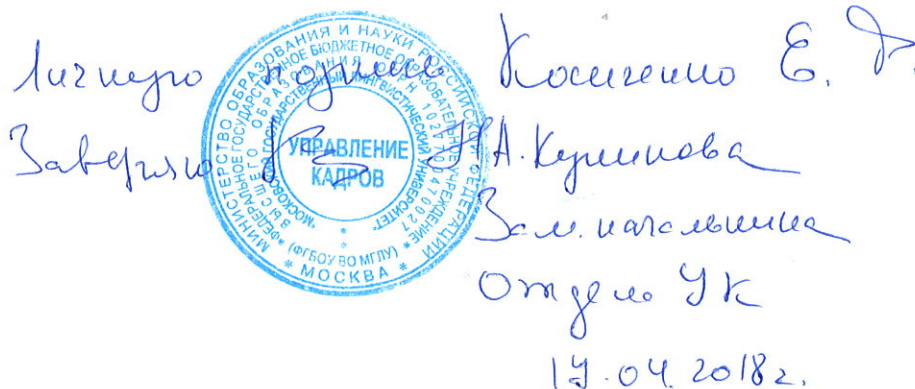 Личную подпись Косиченко Е. Ф.
Заверяю Н.А. Куликова
Зам. начальника
Отдела УК
17.04.2018г.
МИНИСТЕРСТВО ОБРАЗОВАНИЯ И НАУКИ РОССИЙСКОЙ ФЕДЕРАЦИИ
* МОСКВА *
"ФЕДЕРАЛЬНОЕ ГОСУДАРСТВЕННОЕ БЮДЖЕТНОЕ ОБРАЗОВАТЕЛЬНОЕ УЧРЕЖДЕНИЕ
ВЫСШЕГО ОБРАЗОВАНИЯ
"МОСКОВСКИЙ ГОСУДАРСТВЕННЫЙ ЛИНГВИСТИЧЕСКИЙ УНИВЕРСИТЕТ"
(ФГБОУ ВО МГЛУ)
УПРАВЛЕНИЕ
КАДРОВ